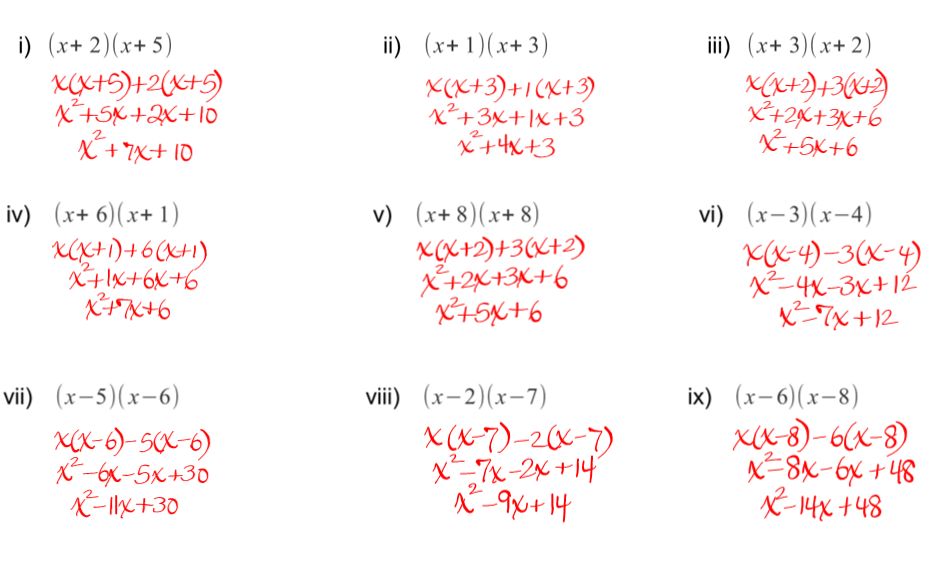 i) (x+ 2)(x+ 5)
x(x+5)+2(x+5)
x²+5x+2x+10
x²+7x+10
ii) (x+ 1)(x+ 3)
x(x+3)+1(x+3)
x²+3x+1x+3
x²+4x+3
iii) (x+ 3)(x+ 2)
x(x+2)+3(x+2)
x²+2x+3x+6
x²+5x+6
iv) (x+ 6)(x+ 1)
x(x+1)+6(x+1)
x²+1x+6x+6
x²+7x+6
v) (x+ 8)(x+ 8)
x(x+2)+3(x+2)
x²+2x+3x+6
x²+5x+6
vi) (x−3)(x−4)
x(x-4)-3(x-4)
x²-4x-3x+12
x²-7x+12
vii) (x−5)(x−6)
x(x-6)-5(x-6)
x²-6x-5x+30
x²-11x+30
viii) (x−2)(x−7)
x(x-7)-2(x-7)
x²-7x-2x+14
x²-9x+14
ix) (x−6)(x−8)
x(x-8)-6(x-8)
x²-8x-6x+48
x²-14x+48